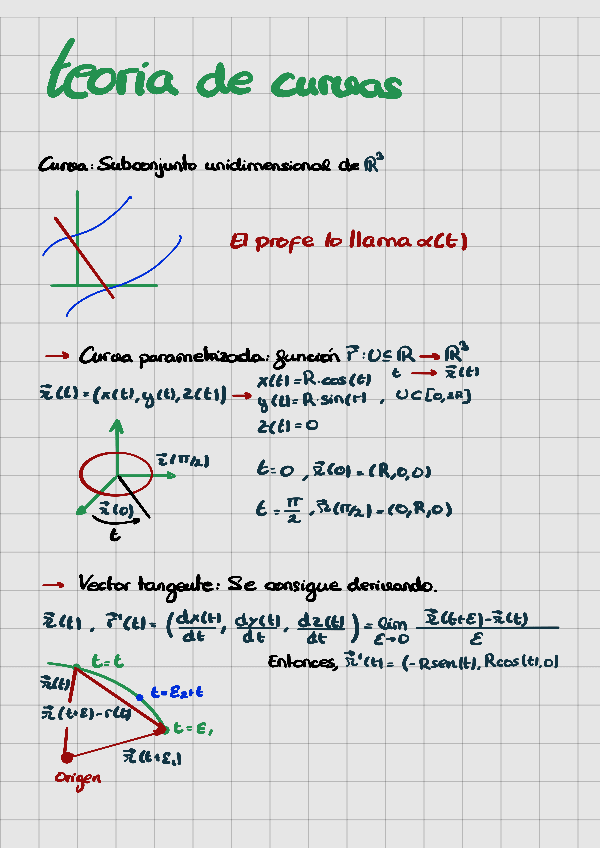 teoria de curvas
Curva: Subconjunto unidimensional de ℝ³
El profe lo llama α(t)
→ Curva parametrizada: función r⃗ : U ⊆ ℝ → ℝ³
t → r⃗(t)
r⃗(t) = (x(t), y(t), z(t)) → x(t) = R·cos(t)
y(t) = R·sin(t) , U ⊂ [0, 2π]
z(t) = 0
r⃗(π/2)
t = 0 , r⃗(0) = (R, 0, 0)
r⃗(0)
t = π/2 , r⃗(π/2) = (0, R, 0)
t
→ Vector tangente: Se consigue derivando.
r⃗(t) , r⃗'(t) = (dx(t)/dt, dy(t)/dt, dz(t)/dt) = lim ε→0 r⃗(t+ε) - r⃗(t) / ε
Entonces, r⃗'(t) = (-Rsen(t), Rcos(t), 0)
t = t
r⃗(t)
t = ε₂ + t
r⃗(t+ε) - r(t)
t = ε₁
r⃗(t+ε₁)
Origen